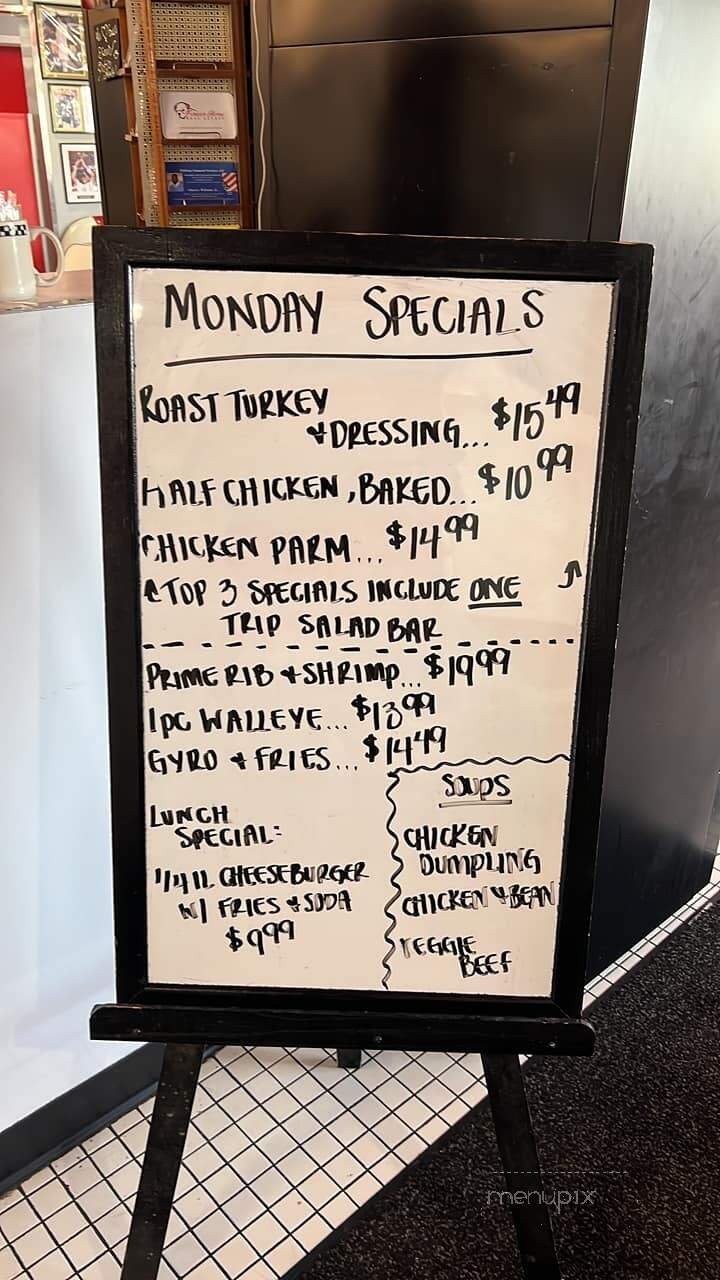 MONDAY SPECIALS
ROAST TURKEY
& DRESSING... $15 49
HALF CHICKEN, BAKED... $10 99
CHICKEN PARM... $14 99
↑ TOP 3 SPECIALS INCLUDE ONE ↑
TRIP SALAD BAR
PRIME RIB & SHRIMP... $19 99
1PC WALLEYE... $13 99
GYRO & FRIES... $14 49
LUNCH
SPECIAL:
1/4 lb. CHEESEBURGER
W/ FRIES & SODA
$9 99
SOUPS
CHICKEN
DUMPLING
CHICKEN & BEAN
VEGGIE
BEEF
menupix